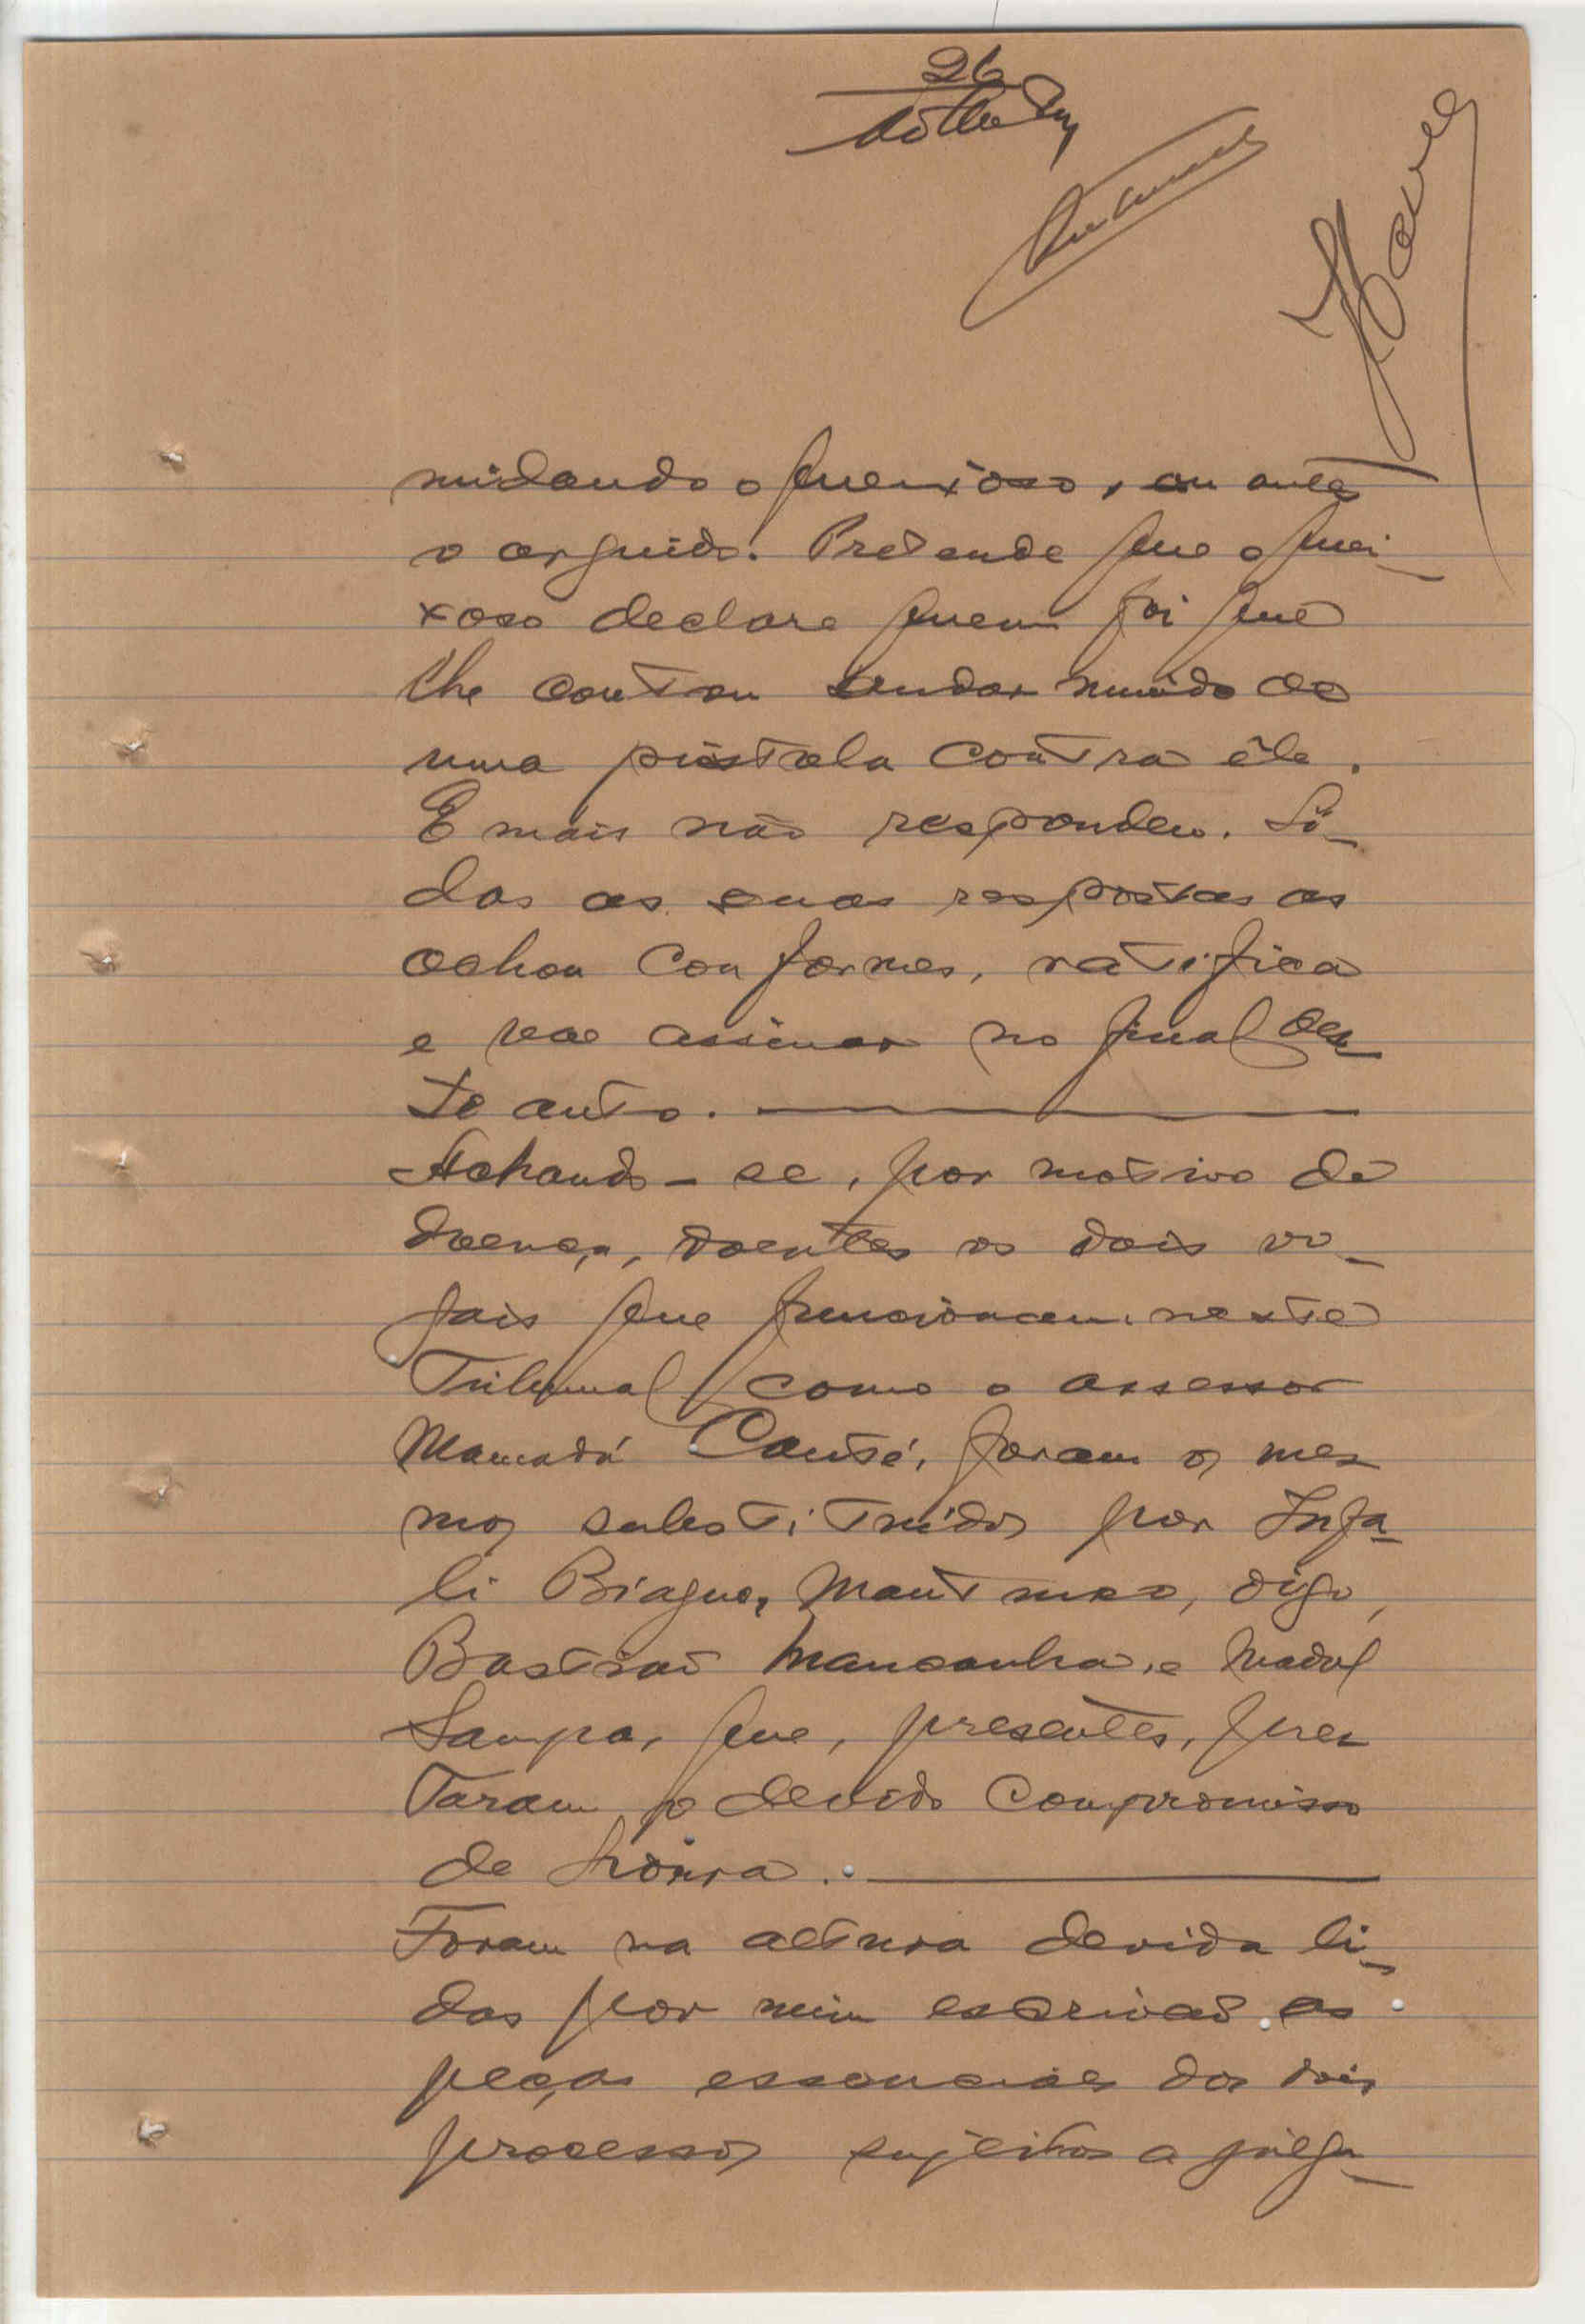 26
midando o queixoso, ou antes
o arguido. Pretende que o quei-
xoso declare quem foi que
lhe contou andar munido de
uma pistola contra êle.
E mais não respondeu. Li-
das as suas respostas as
achou conformes, ratifica
e vae assinar no final des-
te auto.
Achando-se, por motivo de
doença, doentes os dois vo-
gais que funcionam neste
Tribunal como o assessor
Mamadú Canté, foram os mes
mos substituidos por Infa-
li Biague, digo,
Bastião Mancanha, e Madul
Sampa, que, presentes, pres
taram o devido compromisso
de honra.
Foram na altura devida li-
das por mim escrivão as
peças essenciaes dos dois
processos sujeitos a julga-